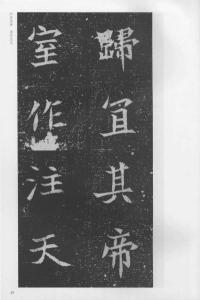 歸宜其帝
室作注天